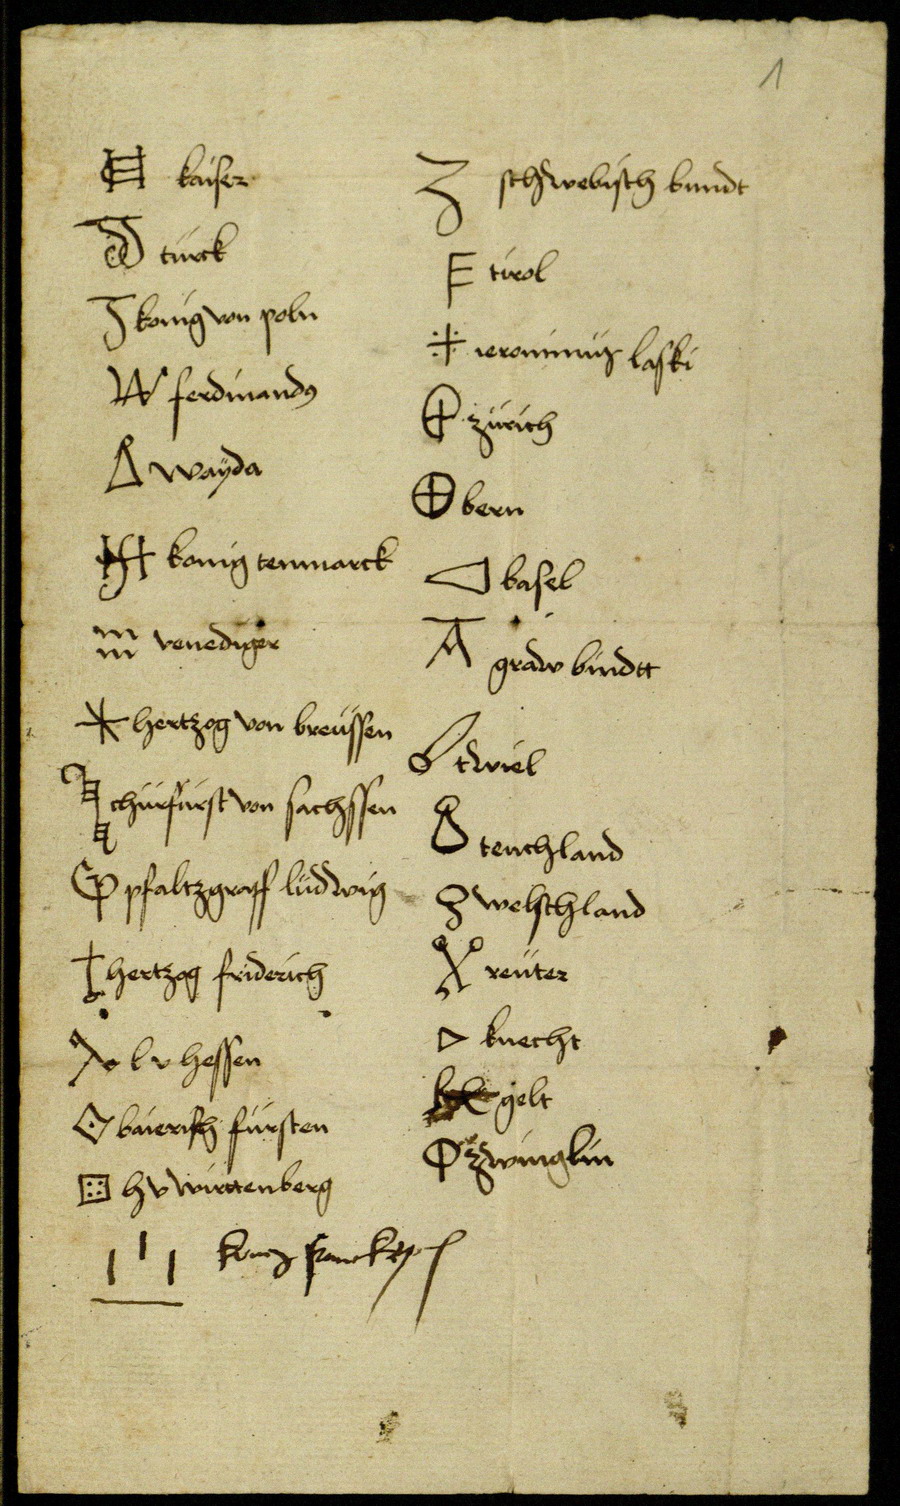 1
kaiser
türck
konig von poln
W ferdinandus
wayda
konig tenmarck
venediger
hertzog von breüssen
churfürst von sachssen
pfaltzgraff ludwig
hertzog friderich
l v hessen
baierisch fürsten
h v wirttenberg
konig
schwebisch bundt
tirol
ieronimus laski
zürich
bern
basel
graw bündtt
twiel
teuchland
welschland
reüter
knecht
gelt
zwinglin